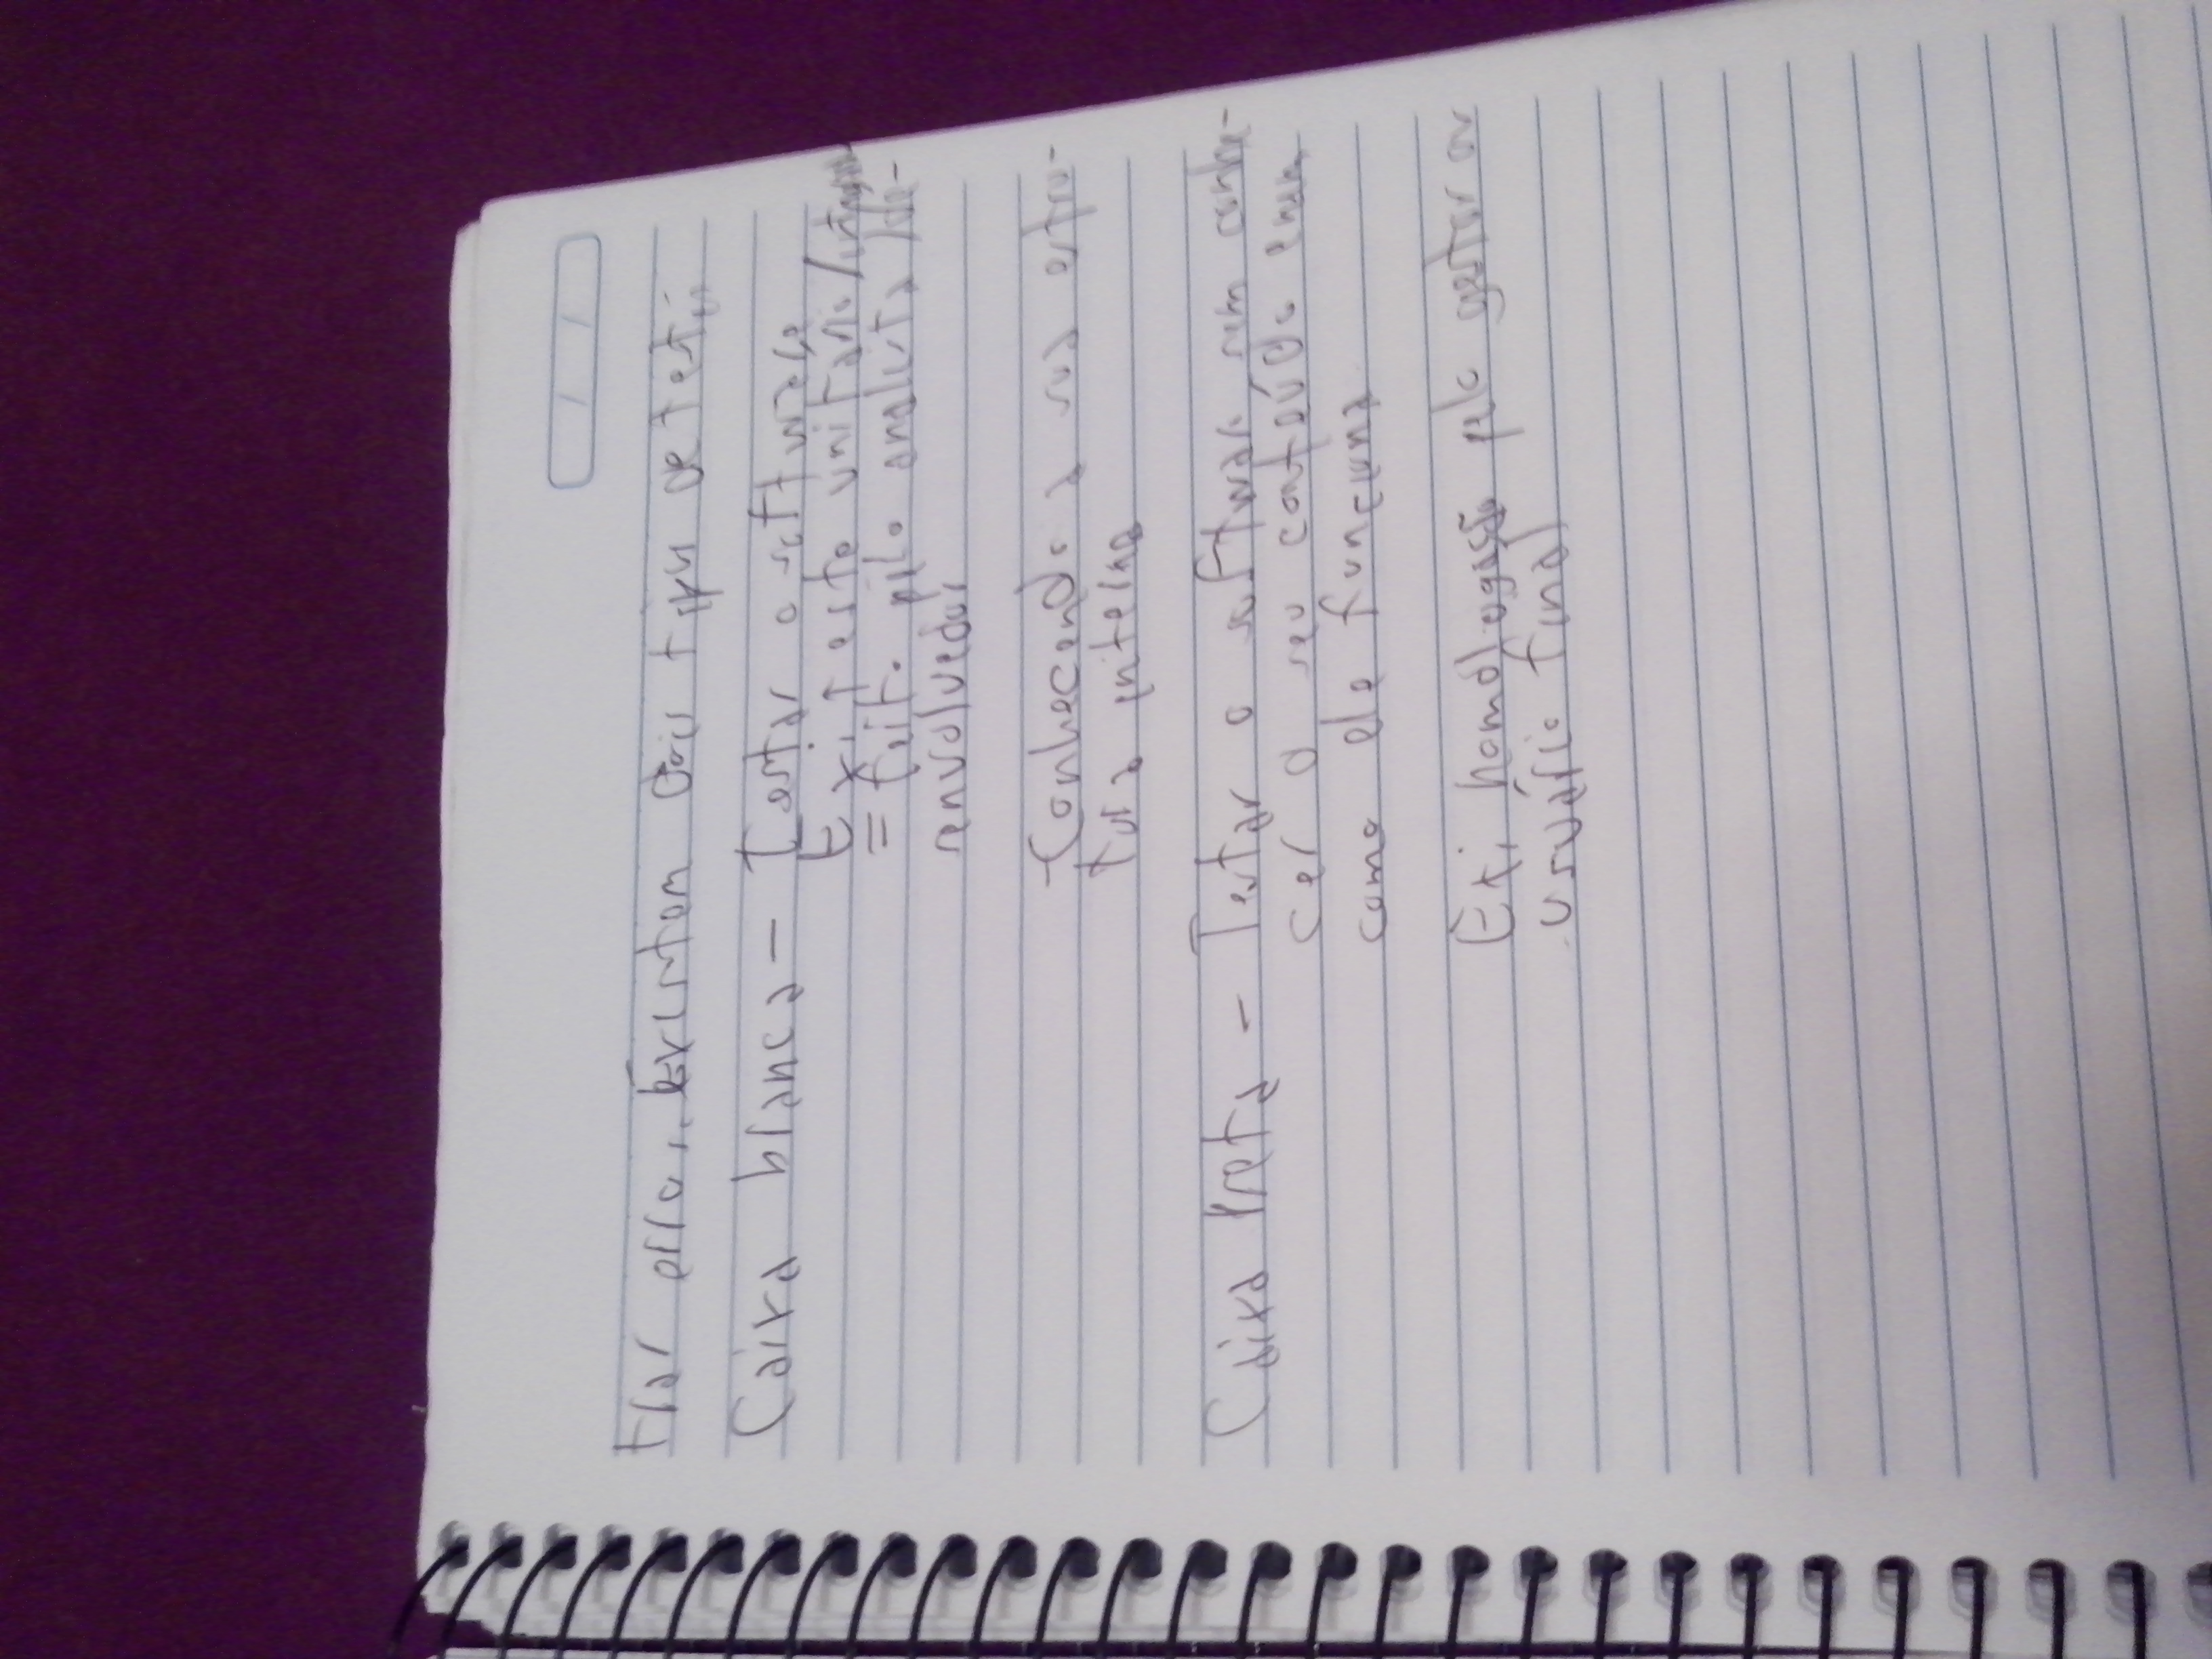 trar erros. Existem dois tipos de testes
Caixa branca - Testar o software
Ex: Teste unitário/
= feito pelo analista/de-
senvolvedor
- Conhecendo a sua estru-
tura interna
Caixa Preta - Testar o software sem conhe-
cer o seu conteúdo e nem
como ele funciona
Ex: homologação pelo gestor ou
usuário final